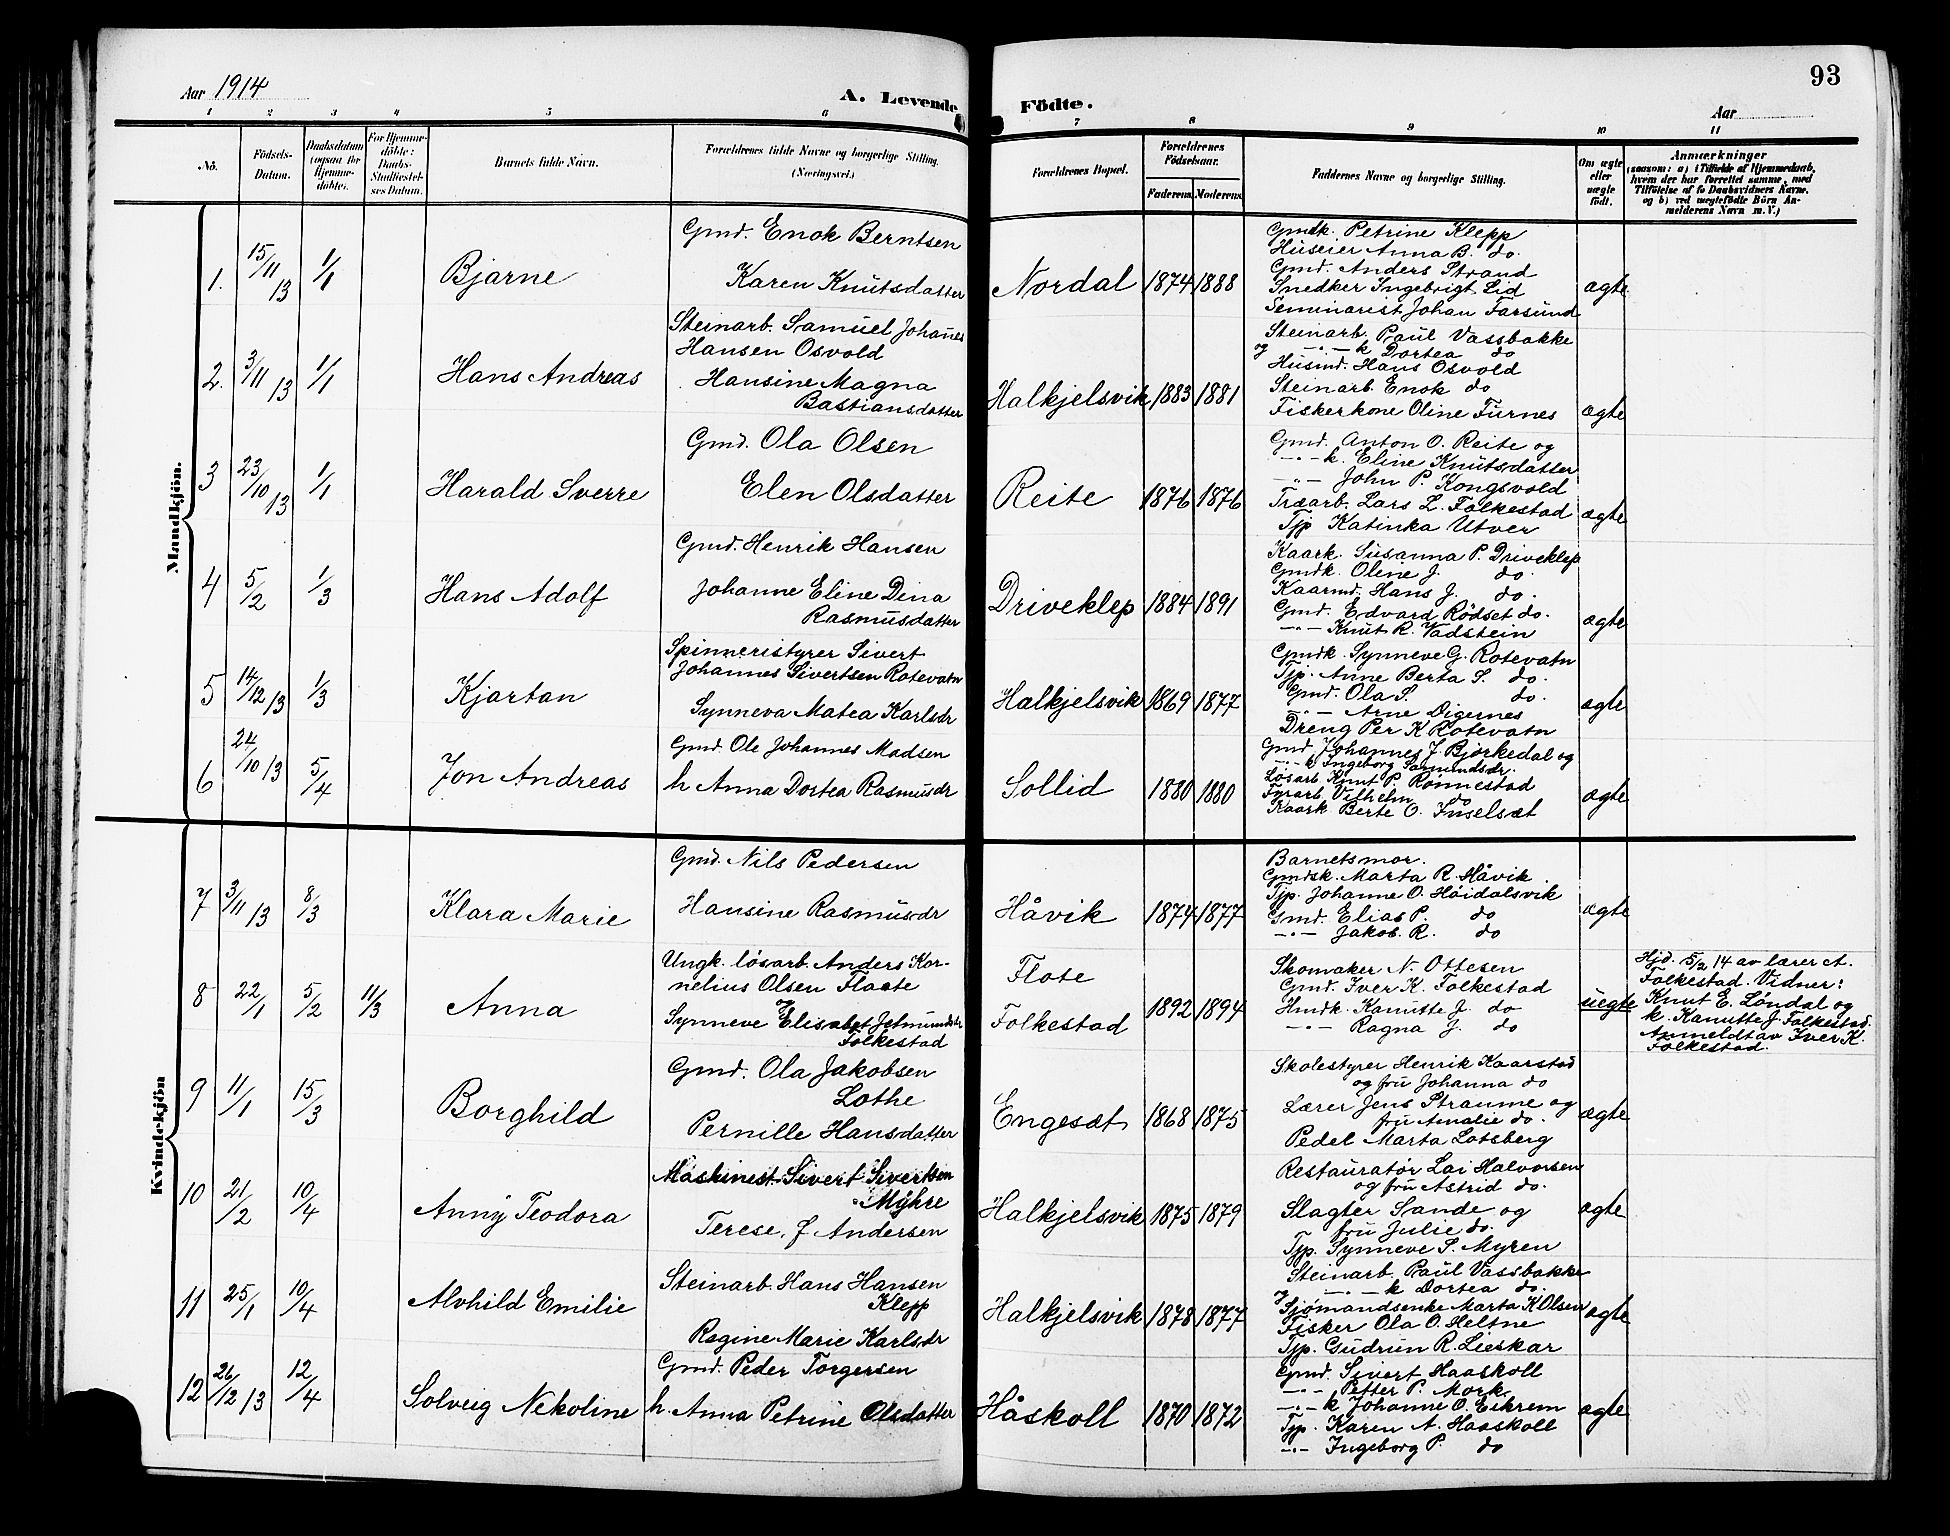 Aar 1914
A. Levende Födte.
Aar
93
1 2 3 4 5 6 7 8 9 10 11
No.
Födsels-Datum.
Daabsdatum (ogsaa for Hjemmedöbte).
For Hjemmedöbte: Daabs-Stadfæstelses Datum.
Barnets fulde Navn.
Forældrenes fulde Navne og borgerlige Stilling. (Næringsvei.)
Forældrenes Bopæl.
Forældrenes Födselsaar.
Faderens. Moderens.
Faddernes Navne og borgerlige Stilling.
Om ægte eller uægte födt.
Anmærkninger
(saasom: a) i Tilfælde af Hjemmedaab,
hvem der har forrettet samme, med
Tilföielse af to Daabsvidners Navne.
og b) ved uægtefödte Börn An-
melderens Navn m. V.)
Mandkjön.
1. 15/11 13 1/1 Bjarne
Gmd. Enok Berntsen
Karen Knutsdatter
Nordal 1874 1888
Gmdk. Petrine Klepp
Huseier Anna B. do.
Gmd. Anders Strand
Snedker Ingebrigt Lid
Seminarist Johan Farsund
ægte
2. 3/11 13 1/1 Hans Andreas
Steinarb. Samuel Johanes
Hansen Osvold
Hansine Magna
Bastiansdatter
Halkjelsvik 1883 1881
Steinarb. Paul Vassbakke
og -"- k Dortea do
Husmd. Hans Osvold
Steinarb. Enok do
Fiskerkone Oline Furnes
ægte
3 23/10 13 1/1 Harald Sverre
Gmd. Ola Olsen
Elen Olsdatter
Reite 1876 1876
Gmd. Anton O. Reite og
-"- k. Eline Knutsdatter
-"- John P. Kongsvold
Træarb. Lars L. Folkestad
Tjp Katinka Utver
ægte
4 5/2 1/3 Hans Adolf
Gmd. Henrik Hansen
Johanne Eline Dina
Rasmusdatter
Driveklep 1884 1891
Kaark. Susanna P. Driveklep
Gmdk. Oline J. do.
Kaarmd. Hans J. do.
Gmd. Edvard Rødset do.
-"- Knut R. Vadstein
ægte
5 14/12 13 1/3 Kjartan
Spinneristyrer Sivert
Johannes Sivertsen Rotevatn
Synneva Matea Karlsdr
Halkjelsvik 1869 1877
Gmdk. Synneve G. Rotevatn
Tjp. Anne Berta S. do.
Gmd. Ola S. do.
-"- Arne Digernes
Dreng Per K Rotevatn
ægte
6 24/10 13 5/4 Jon Andreas
Gmd. Ole Johannes Madsen
h Anna Dortea Rasmusdr
Sollid 1880 1880
Gmd. Johannes J. Bjørkedal og
-"- k Ingeborg Samundsdr.
Løsarb. Knut P. Rønnestad
Fyrarb. Vilhelm do
Kaark Berte O. Inselsæt
ægte
Kvindekjön
7 3/11 13 8/3 Klara Marie
Gmd. Nils Pedersen
Hansine Rasmusdr
Håvik 1874 1877
Barnetsmor.
Gmdsk. Marta R. Håvik
Tjp. Johanne O. Höidalsvik
Gmd. Elias P. do
-"- Jakob. R. do
ægte
8 22/1 5/2 11/3 Anna
Ungk. løsarb. Anders Kor-
nelius Olsen Flaate
og
Synneve Elisabet Jetmundsdr
Folkestad
Flote
Folkestad
1892 1894
Skomaker N. Ottesen
Gmd. Iver K. Folkestad
Hmdk. Kanutte J. do
-"- Ragna J. do
uegte
Hjd. 5/2 14 av lærer A.
Folkestad. Vidner:
Knut E. Løndal og
k. Kanutte J. Folkestad.
Anmeldt av Iver K.
Folkestad.
9 11/1 15/3 Borghild
Gmd. Ola Jakobsen
Lothe
Pernille Hansdatter
Engesæt 1868 1875
Skolestyrer Henrik Kaarstad
og fru Johanna do
Lærer Jens Straume og
fru Amalie do.
Pedel Marta Lotsberg
ægte
10 21/2 10/4 Anny Teodora
Maskinest Sivert Sivertsen
Myhre
Terese. J Andersen
Halkjelsvik 1875 1879
Restauratør Lai Halvorsen
og fru Astrid do.
Slagter Sande og
fru Julie do.
Tjp. Synneve S. Myren
ægte
11 25/1 10/4 Alvhild Emilie
Steinarb. Hans Hansen
Klepp
Ragine Marie Karlsdr
Halkjelsvik 1878 1877
Steinarb. Paul Vassbakke
og -"- k Dortea do.
Sjömandsenke Marta K Olsen
Fisker Ola O. Heltne
Tjp. Gudrun R. Lieskar
ægte
12 26/12 13 12/4 Solveig Nekoline
Gmd. Peder Torgersen
h. Anna Petrine Olsdatter
Håskoll 1870 1872
Gmd. Sivert Haaskoll
-"- Petter P. Mork
-"- k Johanne O. Eikrem
Tjp. Karen A. Haaskoll
-"- Ingeborg P. do
ægte